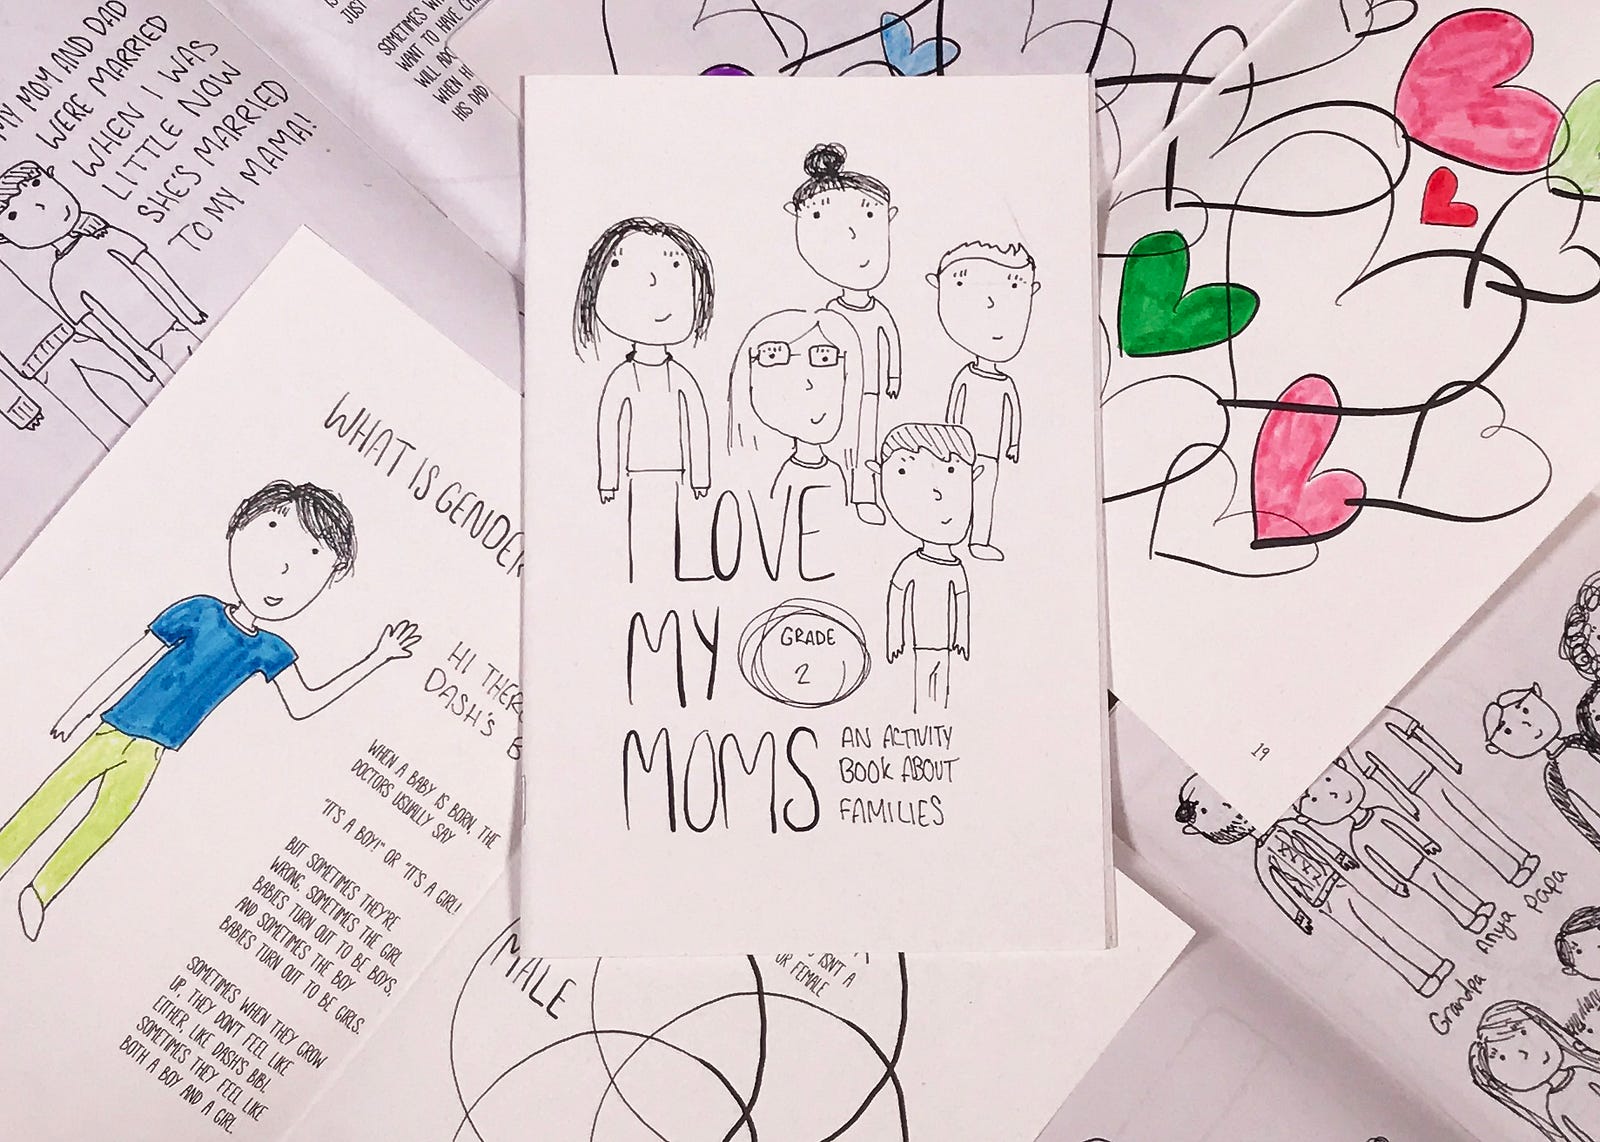 MY MOM AND DAD
WERE MARRIED
WHEN I WAS
LITTLE NOW
SHE'S MARRIED
TO MY MAMA!
JUST
SOMETIMES
WANT TO HAVE
WILL
WHEN
HIS DAD
WHAT IS GENDER
HI THERE
DASH'S B
WHEN A BABY IS BORN, THE
DOCTORS USUALLY SAY
"IT'S A BOY!" OR "IT'S A GIRL!
BUT SOMETIMES THEY'RE
WRONG. SOMETIMES THE GIRL
BABIES TURN OUT TO BE BOYS,
AND SOMETIMES THE BOY
BABIES TURN OUT TO BE GIRLS.
SOMETIMES WHEN THEY GROW
UP, THEY DON'T FEEL LIKE
EITHER, LIKE DASH'S BIBI.
SOMETIMES THEY FEEL LIKE
BOTH A BOY AND A GIRL.
I LOVE
MY
GRADE
2
MOMS
AN ACTIVITY
BOOK ABOUT
FAMILIES
MALE
ISN'T A
OR FEMALE
19
Grandpa Anya Papa